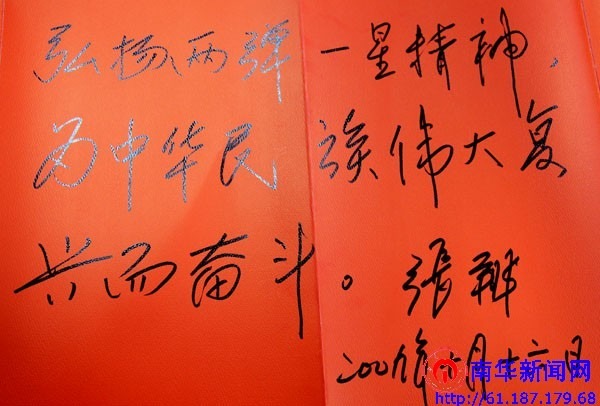 弘扬两弹一星精神，
为中华民族伟大复
兴而奋斗。張
月十六日
南华新闻网
http://61.187.179.68